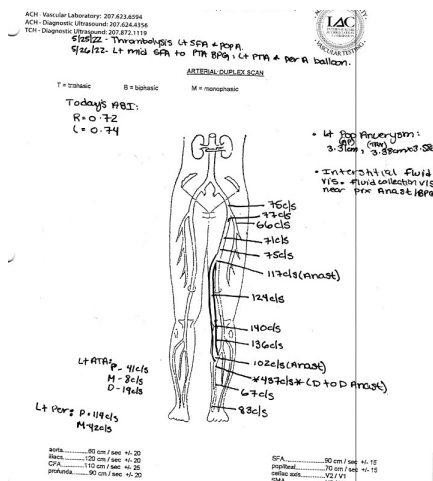 ACH - Vascular Laboratory: 207.623.6594
ACH - Diagnostic Ultrasound: 207.624.4356
TCH - Diagnostic Ultrasound: 207.872.1119
IAC
VASCULAR TESTING
5/25/22 - Thrombolysis Lt SFA & pop A.
5/26/22 - Lt mid SFA to PTA BPG, Lt PTA & per A balloon.
ARTERIAL DUPLEX SCAN
T = triphasic B = biphasic M = monophasic
Today's ABI:
R = 0.72
L = 0.74
• Lt Pop Aneurysm:
(AP) (TRV)
3.31cm, 3.38cm x 3.58
• Interstitial Fluid
vis. fluid collection vis
near prx Anast/BPG
75c/s
77c/s
66c/s
71c/s
75c/s
117c/s (Anast)
124c/s
140c/s
136c/s
102c/s (Anast)
*437c/s* (D to D Anast)
67c/s
83c/s
Lt ATA:
P - 41c/s
M - 8c/s
D - 19c/s
Lt Per: P - 119c/s
M - 42c/s
aorta 60 cm / sec +/- 20
iliacs 120 cm / sec +/- 20
CFA 110 cm / sec +/- 25
profunda 90 cm / sec +/- 20
SFA 90 cm / sec +/- 15
popliteal 70 cm / sec +/- 15
celiac axis V2 / V1
SMA